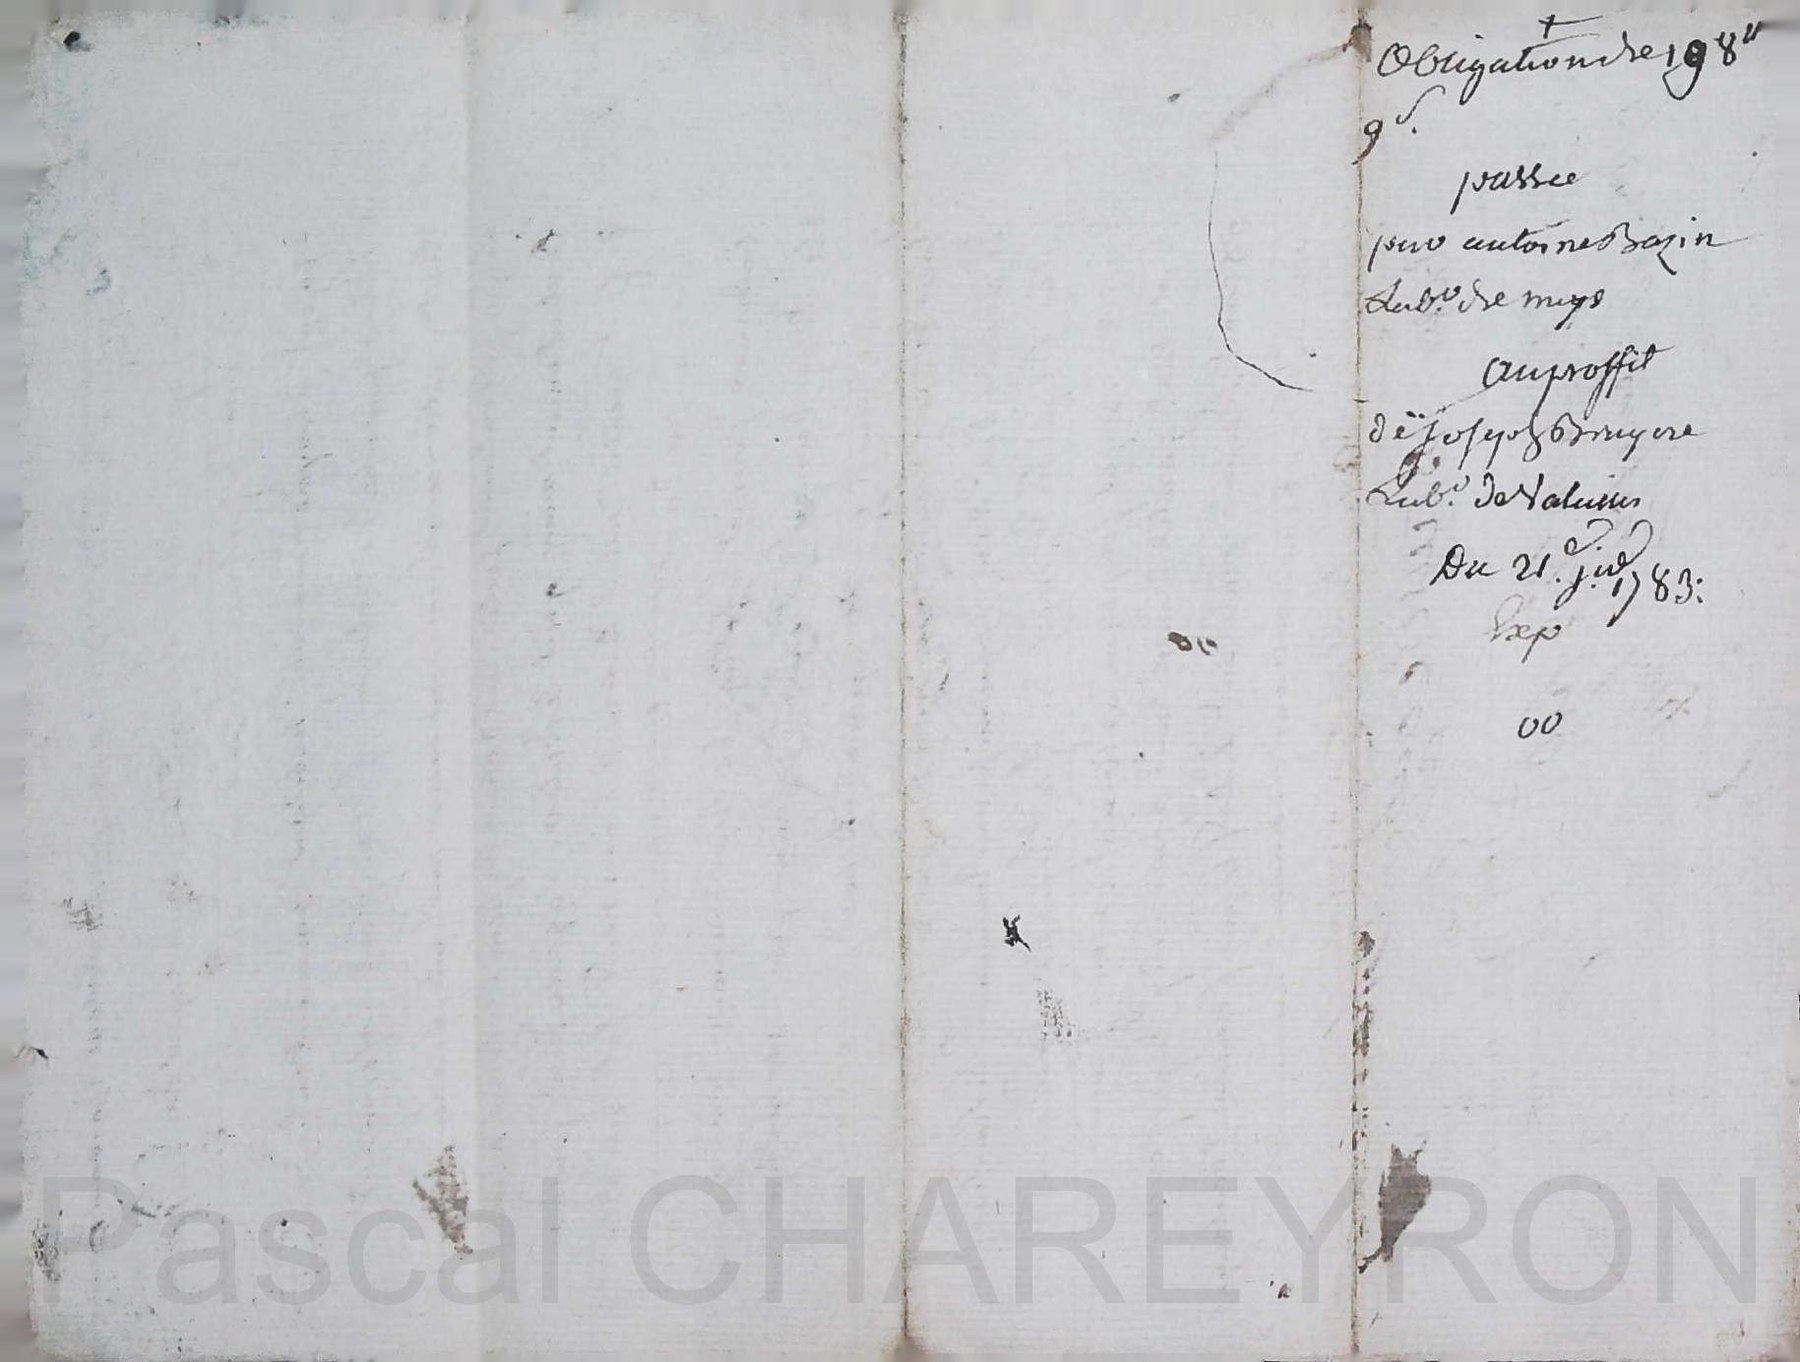 +
Obligation de 198"
9 s.
passee
par antoine Bazin
Lab.r de mys
au proffit
de Joseph Bruyere
Lab.r de
Du 21. j.et 1783:
Exp
00
Pascal CHAREYRON